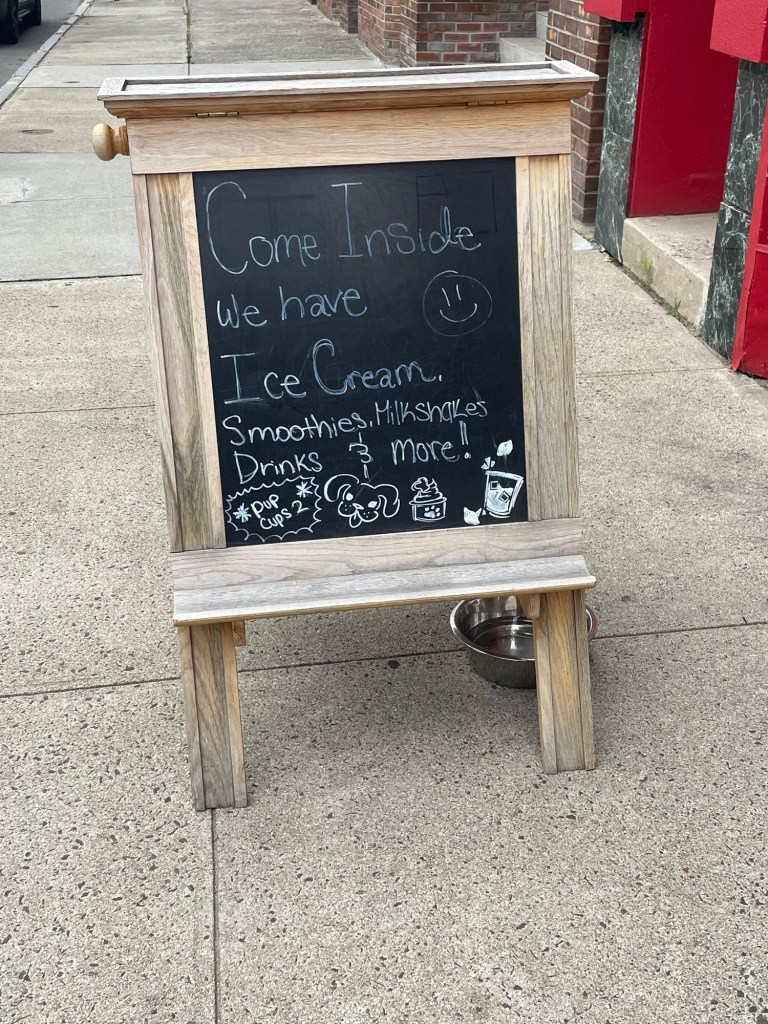 Come Inside
We have
Ice Cream,
Smoothies, Milkshakes
Drinks & more!!
pup
cups 2